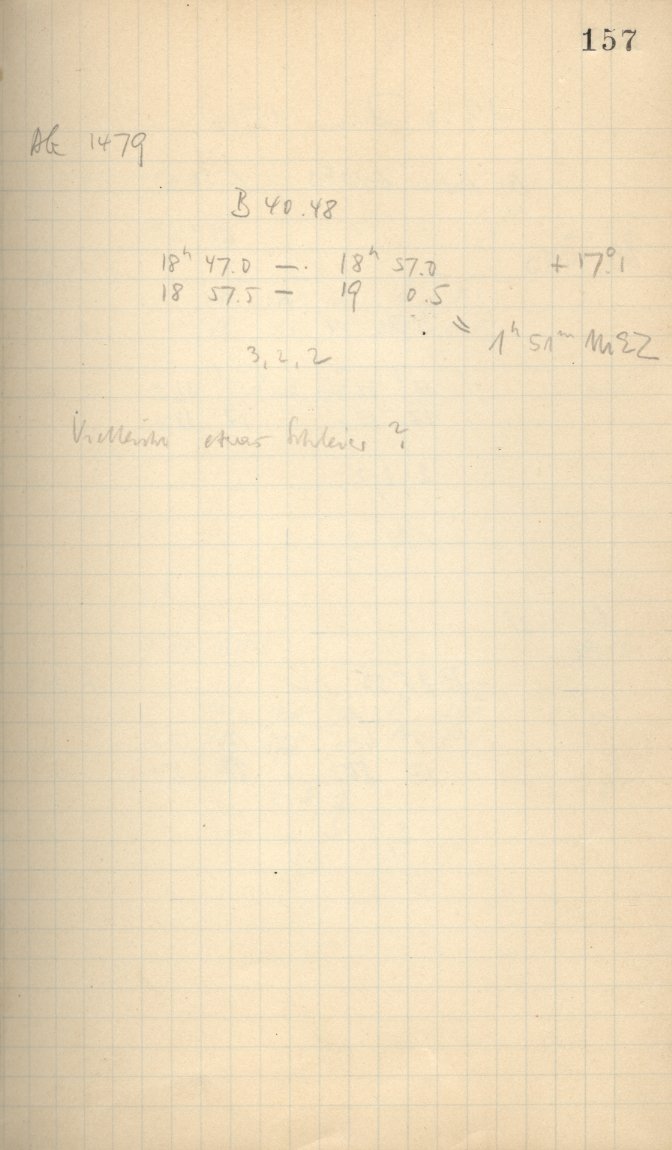 157
1479
B 40.48
18ʰ 47.0 — 18ʰ 57.0 + 17°.1
18 57.5 — 19 0.5
= 1ʰ 51ᵐ MEZ
3, 2, 2
Vielleicht etwas Schleier?